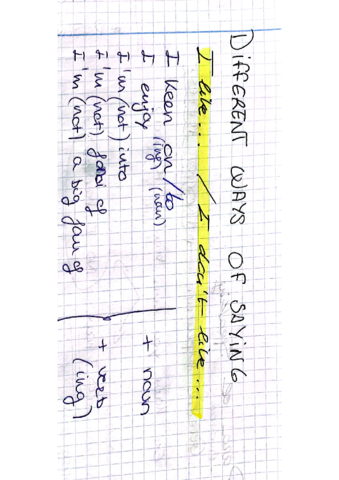 DIFFERENT WAYS OF SAYING
I like... / I don't like...
I keen on/to
(ing) (noun)
I enjoy + noun
I'm (not) into
I'm (not) fond of + verb
I'm (not) a big fan of (ing)